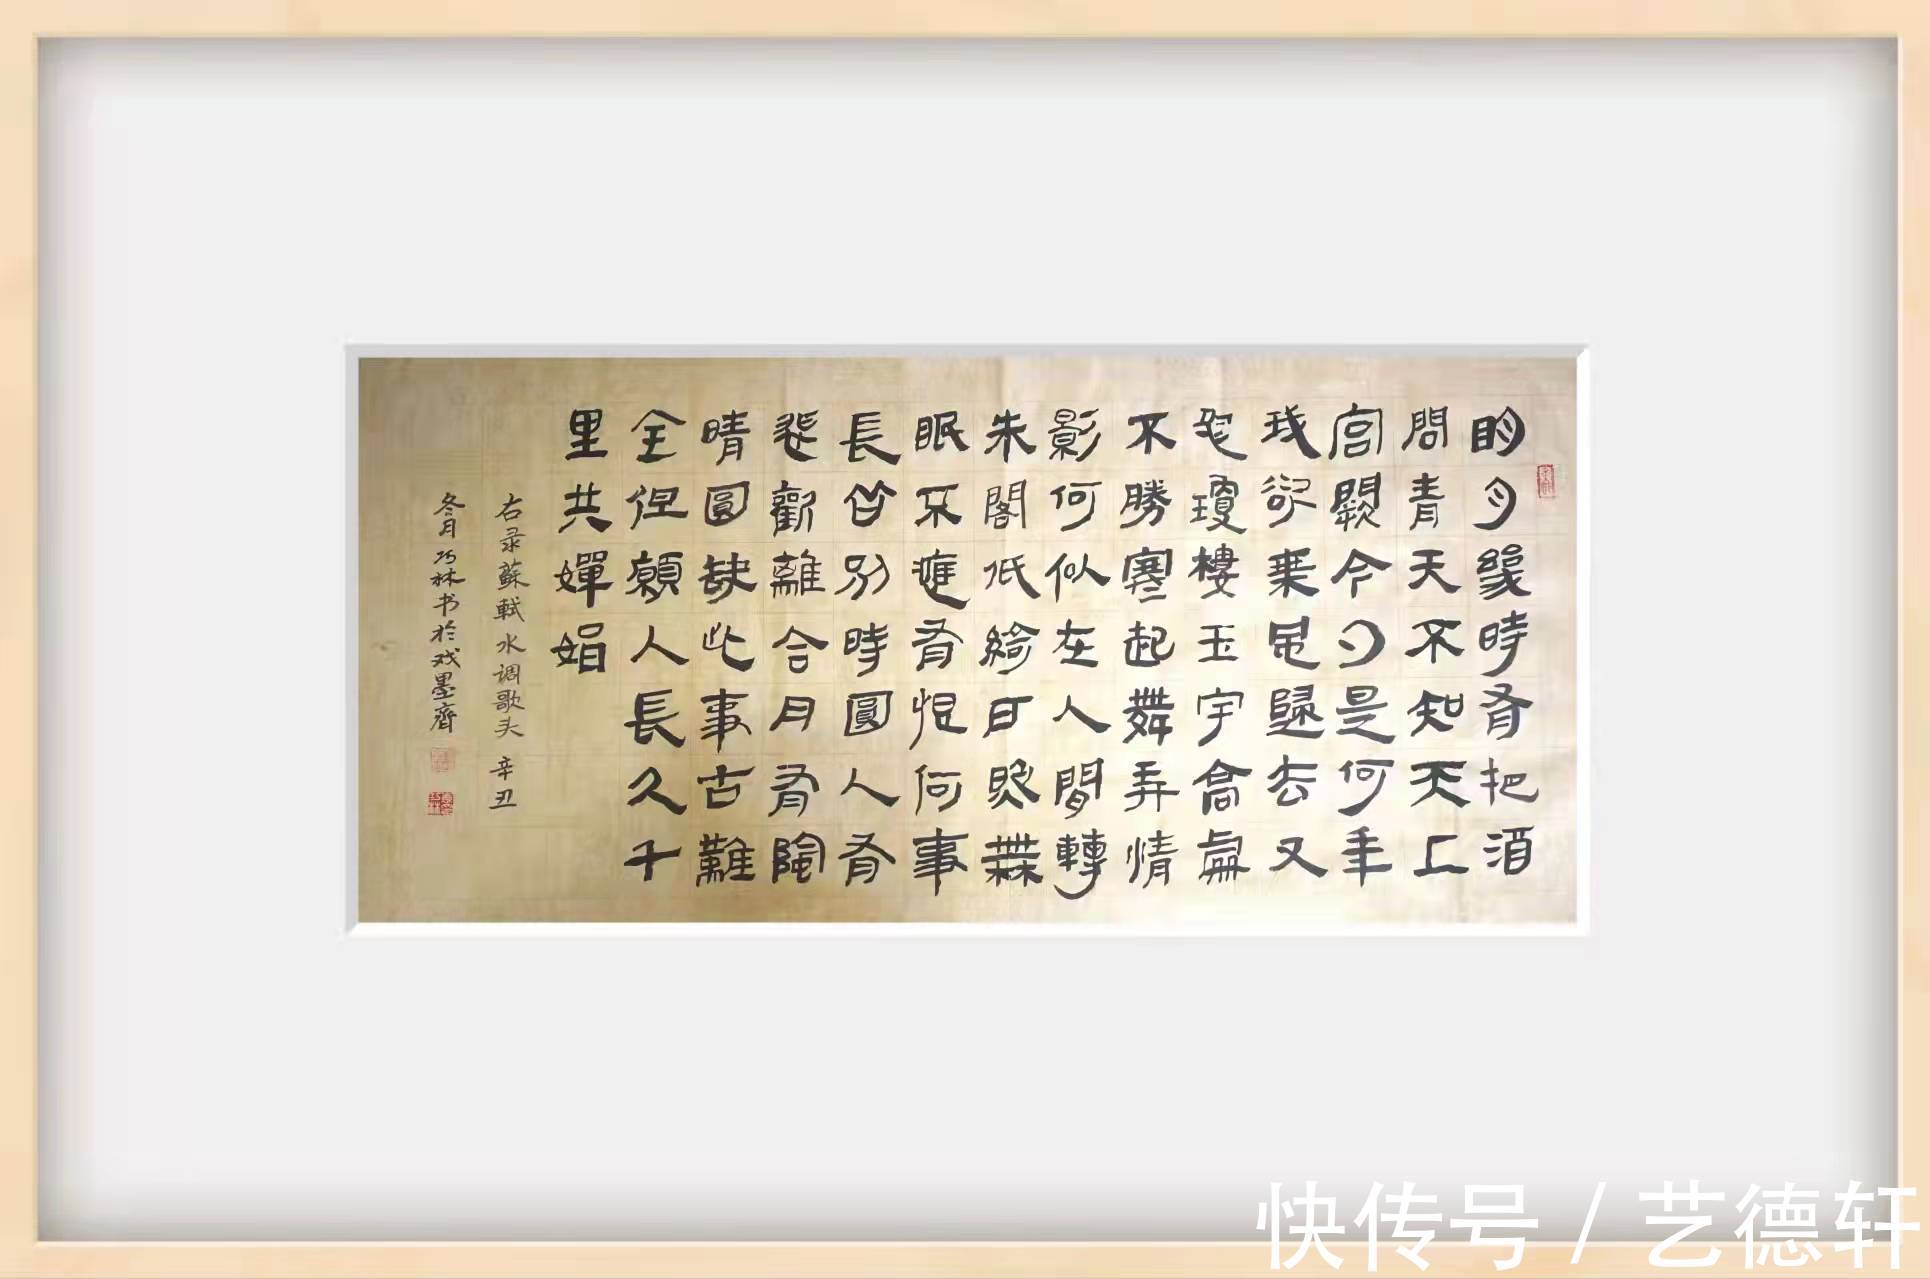 明月幾時有把酒
問青天不知天上
宫闕今夕是何年
我欲乗風歸去又
恐瓊樓玉宇高處
不勝寒起舞弄情
影何似在人間轉
朱閣低綺户照無
眠不應有恨何事
長向别時圓人有
悲歡離合月有陰
晴圓缺此事古難
全但願人長久千
里共嬋娟
右录蘇軾水调歌头 辛丑
冬月巧林书於戏墨齊
快传号 / 艺德轩